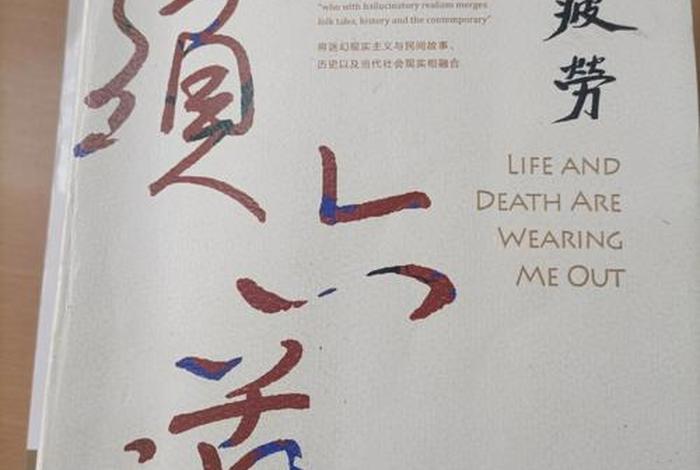 "who with hallucinatory realism merges
folk tales, history and the contemporary"
将迷幻现实主义与民间故事、
历史以及当代社会现实相融合
疲
勞
LIFE AND
DEATH ARE
WEARING
ME OUT
六
道